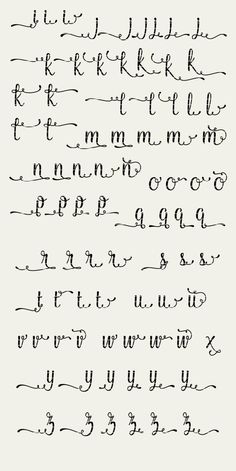 k k k k k k k
k k l l l l l
m m m m m
n n n n n o o o o
p p p p q q q q
r r r r s s s
t t t t u u u
v v v v w w w w x
y y y y y y
z z z z z z